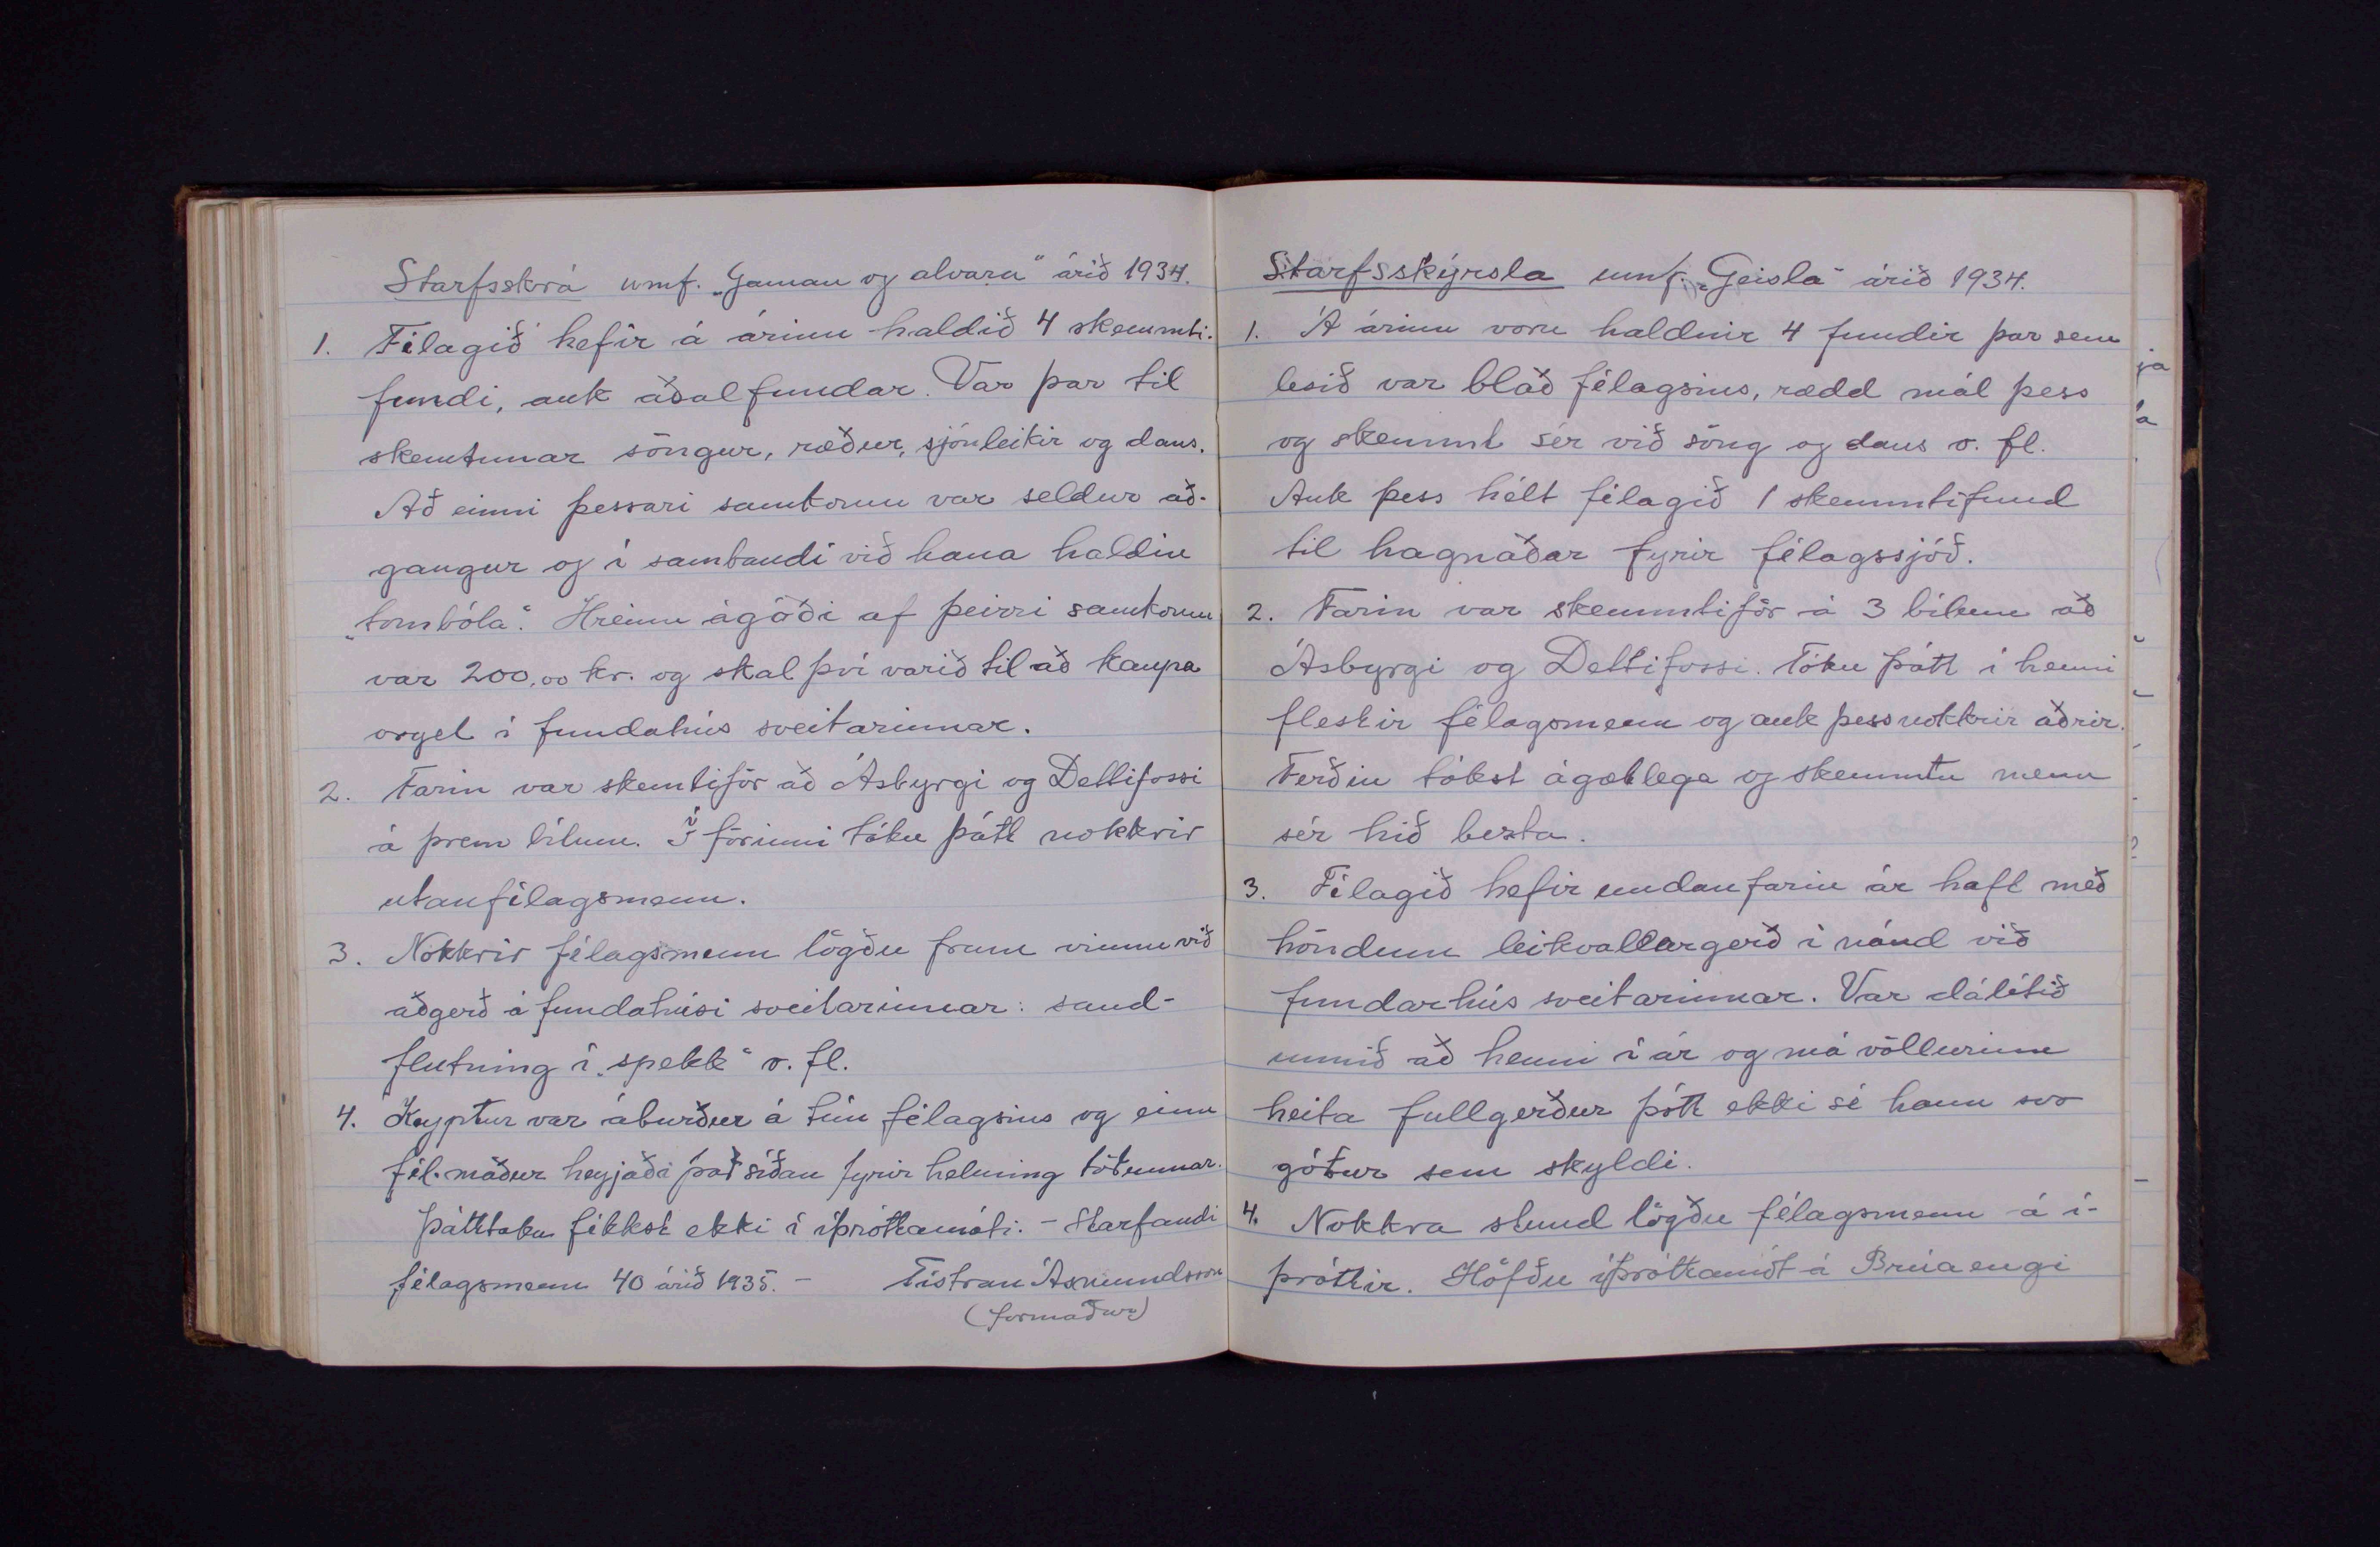 Starfsskrá umf. „Gaman og alvara" árið 1934.
1. Félagið hefir á árinu haldið 4 skemmti-
fundi, auk aðalfundar. Var þar til
skemtunar söngur, ræður, sjónleikir og dans.
Að einni þessari samkomu var seldur að-
gangur og í sambandi við hana haldin
„tombóla". Hreinn ágóði af þeirri samkomu
var 200,00 kr. og skal því varið til að kaupa
orgel í fundahús sveitarinnar.
2. Farin var skemtiför að Ásbyrgi og Dettifossi
á þrem bílum. Í förinni tóku þátt nokkrir
utanfélagsmenn.
3. Nokkrir félagsmenn lögðu fram vinnu við
aðgerð á fundahúsi sveitarinnar: sand-
flutning í „spekk" o. fl.
4. Keyptur var áburður á tún félagsins og einn
fél.maður heyjaði það síðan fyrir helming töðunnar.
Þátttaka fékkst ekki í íþróttamóti. - Starfandi
félagsmenn 40 árið 1935. - Tístran Ásmundsson
(formaður)
Starfsskýrsla umf. „Geisla" árið 1934.
1. Á árinu voru haldnir 4 fundir þar sem
lesið var blað félagsins, rædd mál þess
og skemmt sér við söng og dans o. fl.
Auk þess hélt félagið 1 skemmtifund
til hagnaðar fyrir félagssjóð.
2. Farin var skemmtiför á 3 bílum að
Ásbyrgi og Dettifossi. Tóku þátt í henni
flestir félagsmenn og auk þess nokkrir aðrir.
Ferðin tókst ágætlega og skemmtu menn
sér hið bezta.
3. Félagið hefir undanfarin ár haft með
höndum leikvallargerð í nánd við
fundarhús sveitarinnar. Var dálítið
unnið að henni í ár og má völlurinn
heita fullgerður þótt ekki sé hann svo
góður sem skyldi.
4. Nokkra stund lögðu félagsmenn á í-
þróttir. Höfðu íþróttamót á Brúaengi